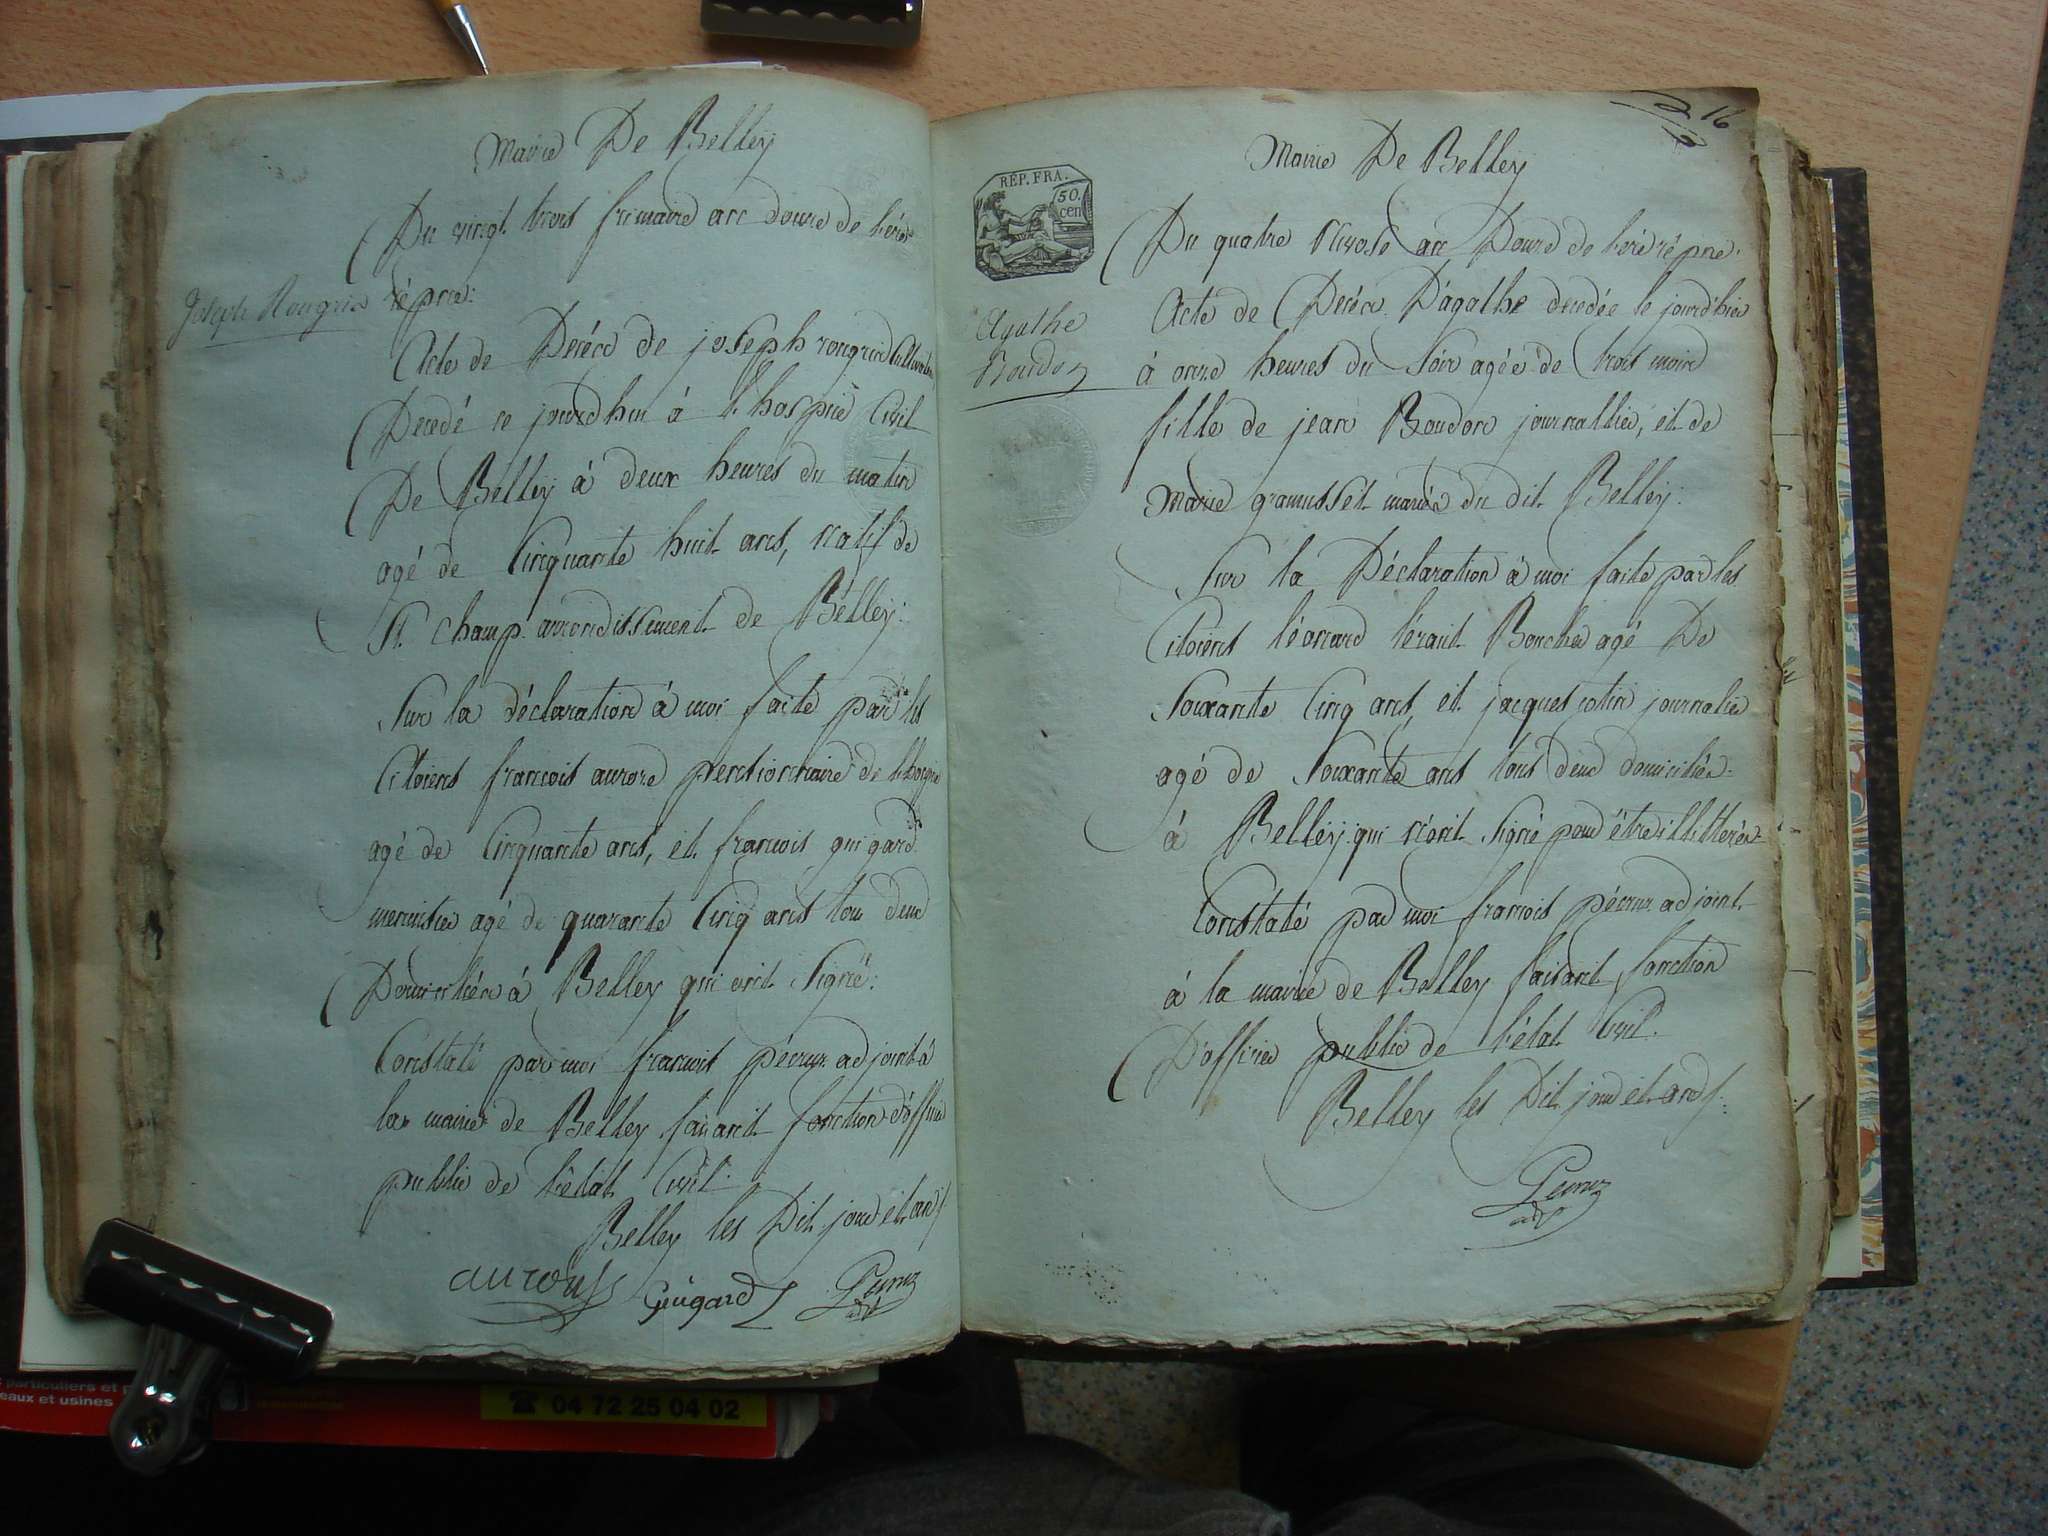 Mairie De Belleÿ
Du vingt trois frimaire an douze de l'ére
répne:
Joseph Rougris
Acte de Décéd de joseph rougris
Decedé ce jourdhui á l'hospice Civil
De Belleÿ á deux heures du matin
agé de Cinquante huit ans, natif de
St. champ. arrondissement de Belleÿ:
Sur la déclaration á moi faite par les
Citoiens francois aurore pensionnaire de l'hospice
agé de Cinquante ans, et francois guigard
menuisier agé de quarante Cinq ans tou deux
Domiciliés á Belley qui ont Signé:
Constaté par moi francois péeruz adjoint á
la mairie de Belley faisant fonction d'officier
public de l'état Civil:
Belley les Dit jour et an
Guigard
Mairie De Belleÿ
16
RÉP. FRA.
50.
cen
Du quatre Nivose an Douze de l'eré répne.
Agathe
Roudon
Acte de Décéd D'agathe decedée le jourd'hier
á onze heures du Soir agée de trois mois
fille de jean Roudon journallier, et de
marie gramusset mariés du dit Belleÿ:
Sur la Déclaration á moi faite par les
Citoiens léonard Boucher agé De
Soixante Cinq ans, et jacques journalier
agé de Soixante ans tous deux domiciliés
á Belleÿ qui n'ont Signé pour être illitterés
Constaté par moi francois péeruz adjoint
á la mairie de Belley faisant fonction
D'officier public de l'état Civil.
Belley les Dit jour et an
particuliers et
eaux et usines
☎ 04 72 25 04 02